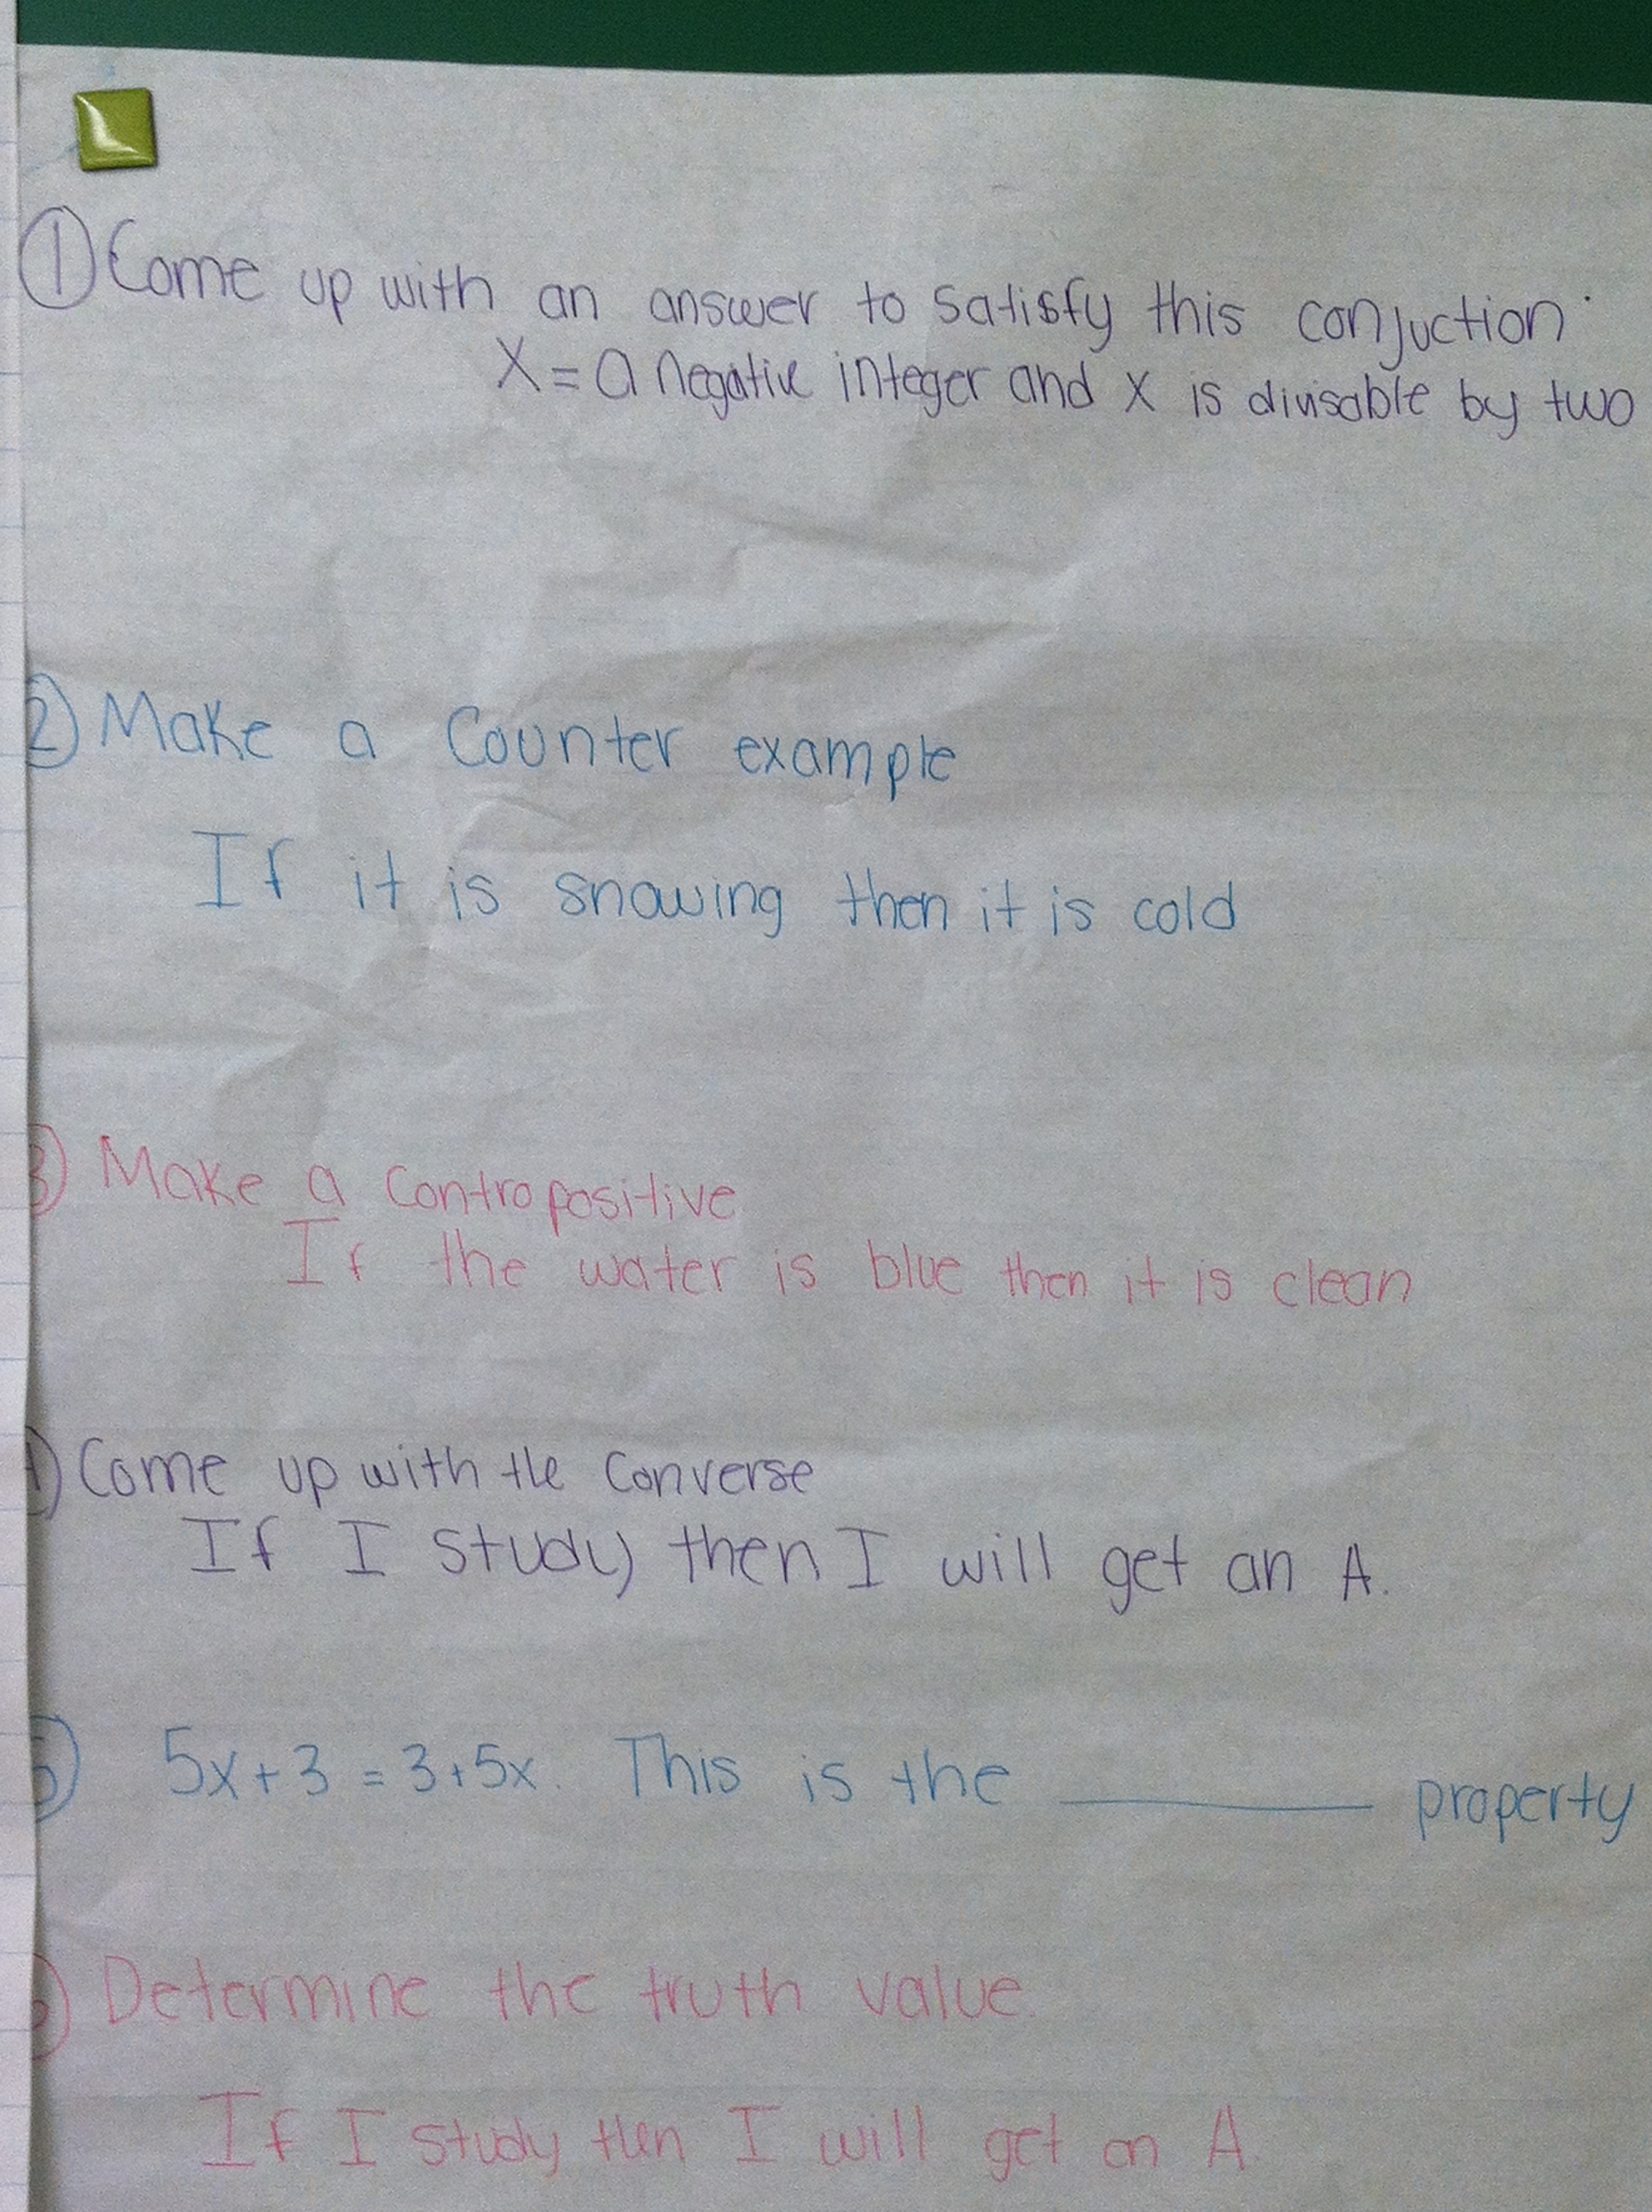 ① Come up with an answer to satisfy this conjuction:
X = a negative integer and x is divisable by two
2) Make a Counter example
If it is snowing then it is cold
3) Make a Contropositive
If the water is blue then it is clean
4) Come up with the Converse
If I study then I will get an A.
5) 5x+3 = 3+5x. This is the ______ property
) Determine the truth value.
If I study then I will get an A.